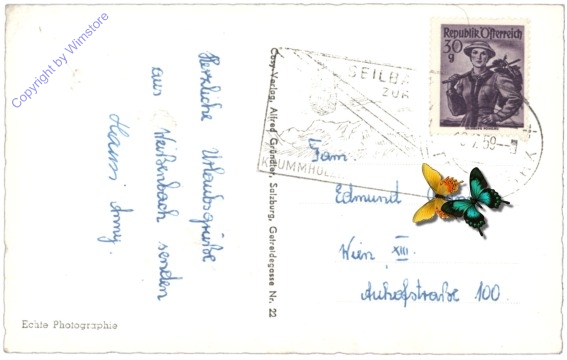 Copyright by Wimstore
Herzliche Urlaubsgrüße
aus Weißenbach senden
Hansi Anny.
Echte Photographie
Cosy-Verlag, Alfred Gründler, Salzburg, Getreidegasse Nr. 22
SEILBA
ZUR
KRUMMHOLZ
Republik Österreich
30
g
59
Fam.
Edmund
Wien XIII.
Auhofstraße 100.